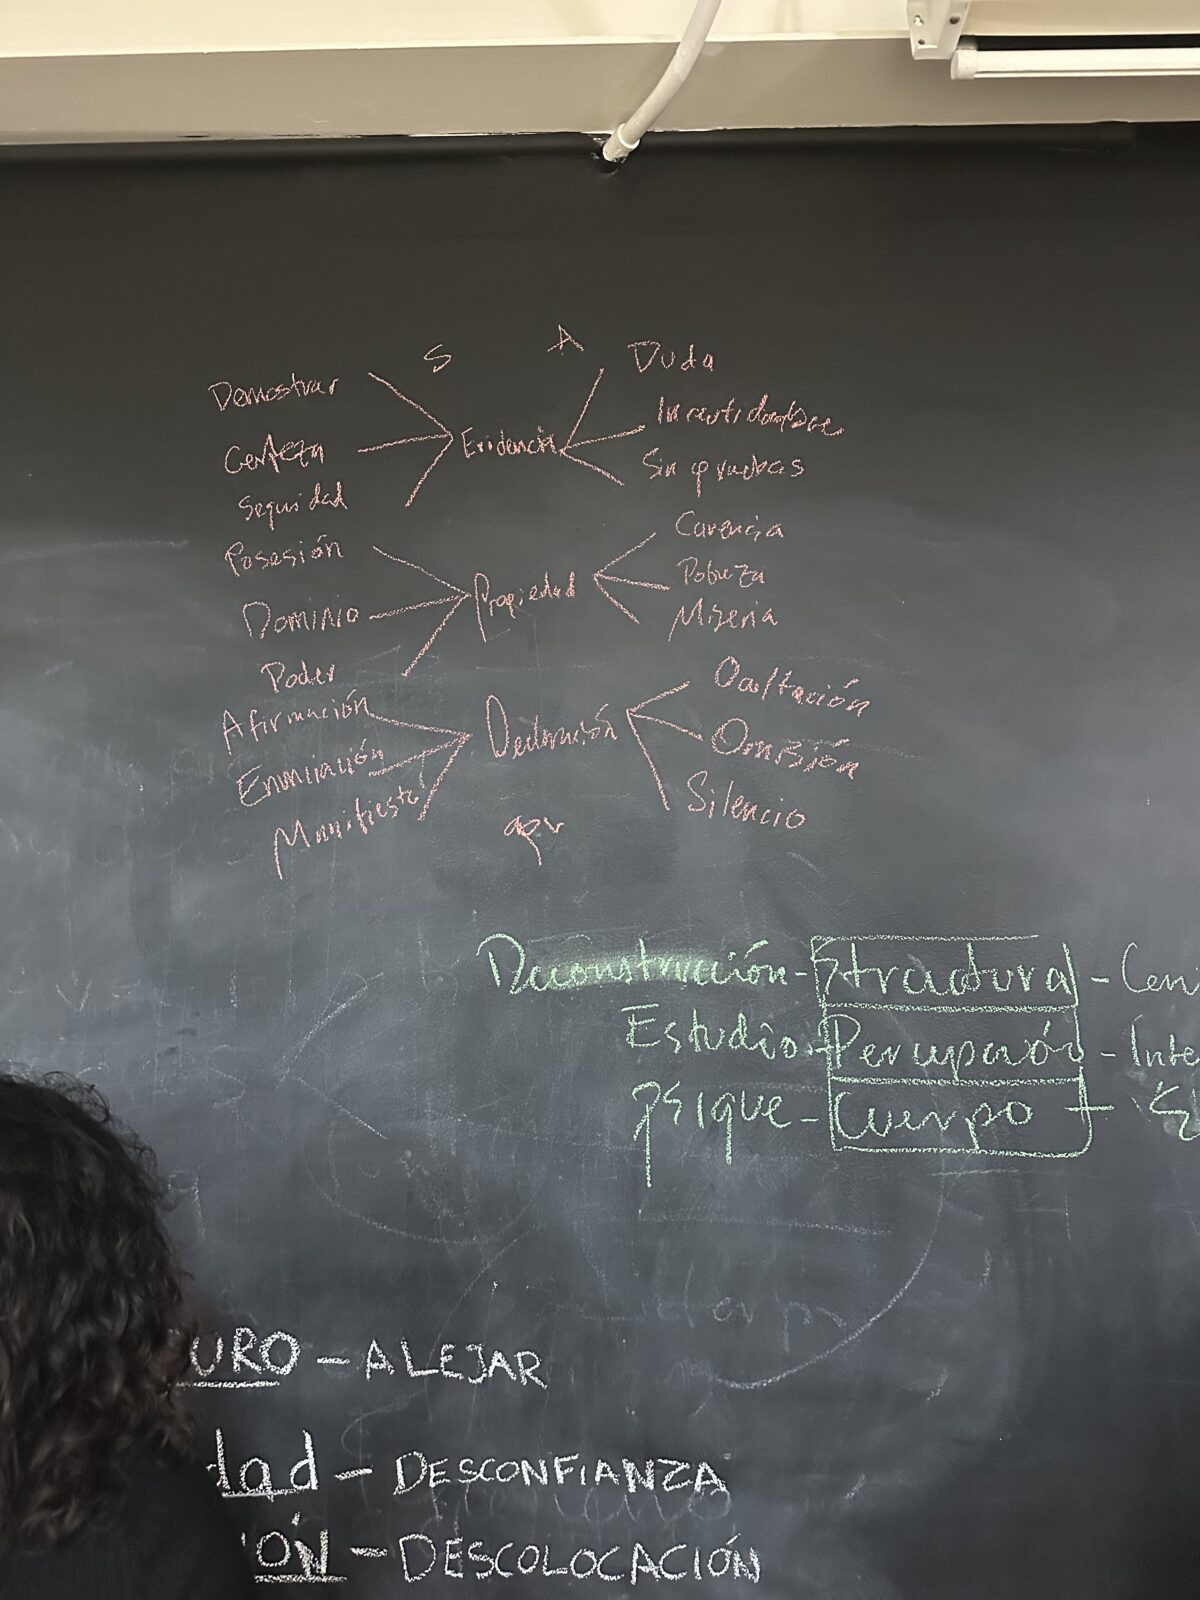 S A
Demostrar Duda
Certeza Evidencia Incertidumbre
Seguridad Sin pruebas
Posesión Carencia
Dominio Propiedad Pobreza
Poder Miseria
Afirmación Ocultación
Enunciación Declaración Omisión
Manifiesta Silencio
Deconstrucción - Estructura - Cen
Estudio - Percepción - Inte
Psique - Cuerpo -
URO - ALEJAR
dad - DESCONFIANZA
IÓN - DESCOLOCACIÓN